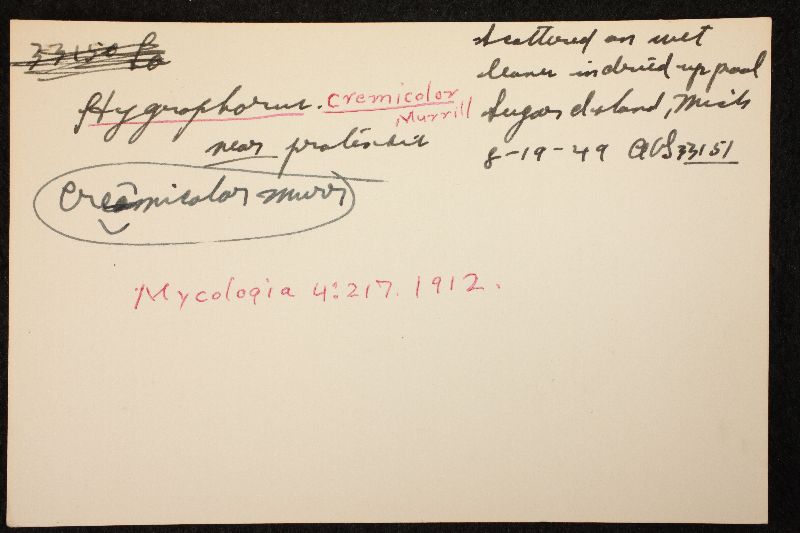 33150
Hygrophorus. cremicolor
Murrill
near pratensis
Cremicolor Murr
Scattered on wet
leaves in dried up pool
Sugar Island, Mich
8-19-49 AHS 33151
Mycologia 4:217. 1912.